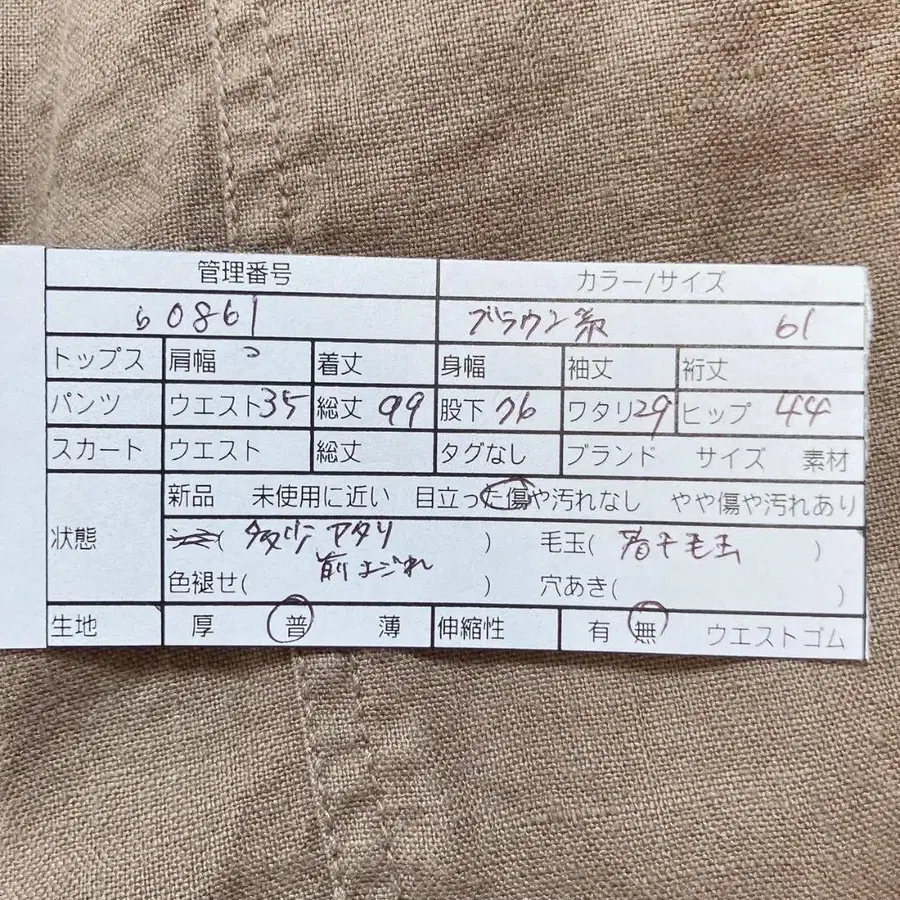 管理番号 カラー/サイズ
ら0861 ブラウン系 61
トップス 肩幅 着丈 身幅 袖丈 裄丈
パンツ ウエスト35 総丈 99 股下 76 ワタリ29 ヒップ 44
スカート ウエスト 総丈 タグなし ブランド サイズ 素材
新品 未使用に近い 目立った傷や汚れなし やや傷や汚れあり
状態 ( アタリ ) 毛玉( 若干毛玉 )
色褪せ( ) 穴あき( )
生地 厚 普 薄 伸縮性 有 無 ウエストゴム